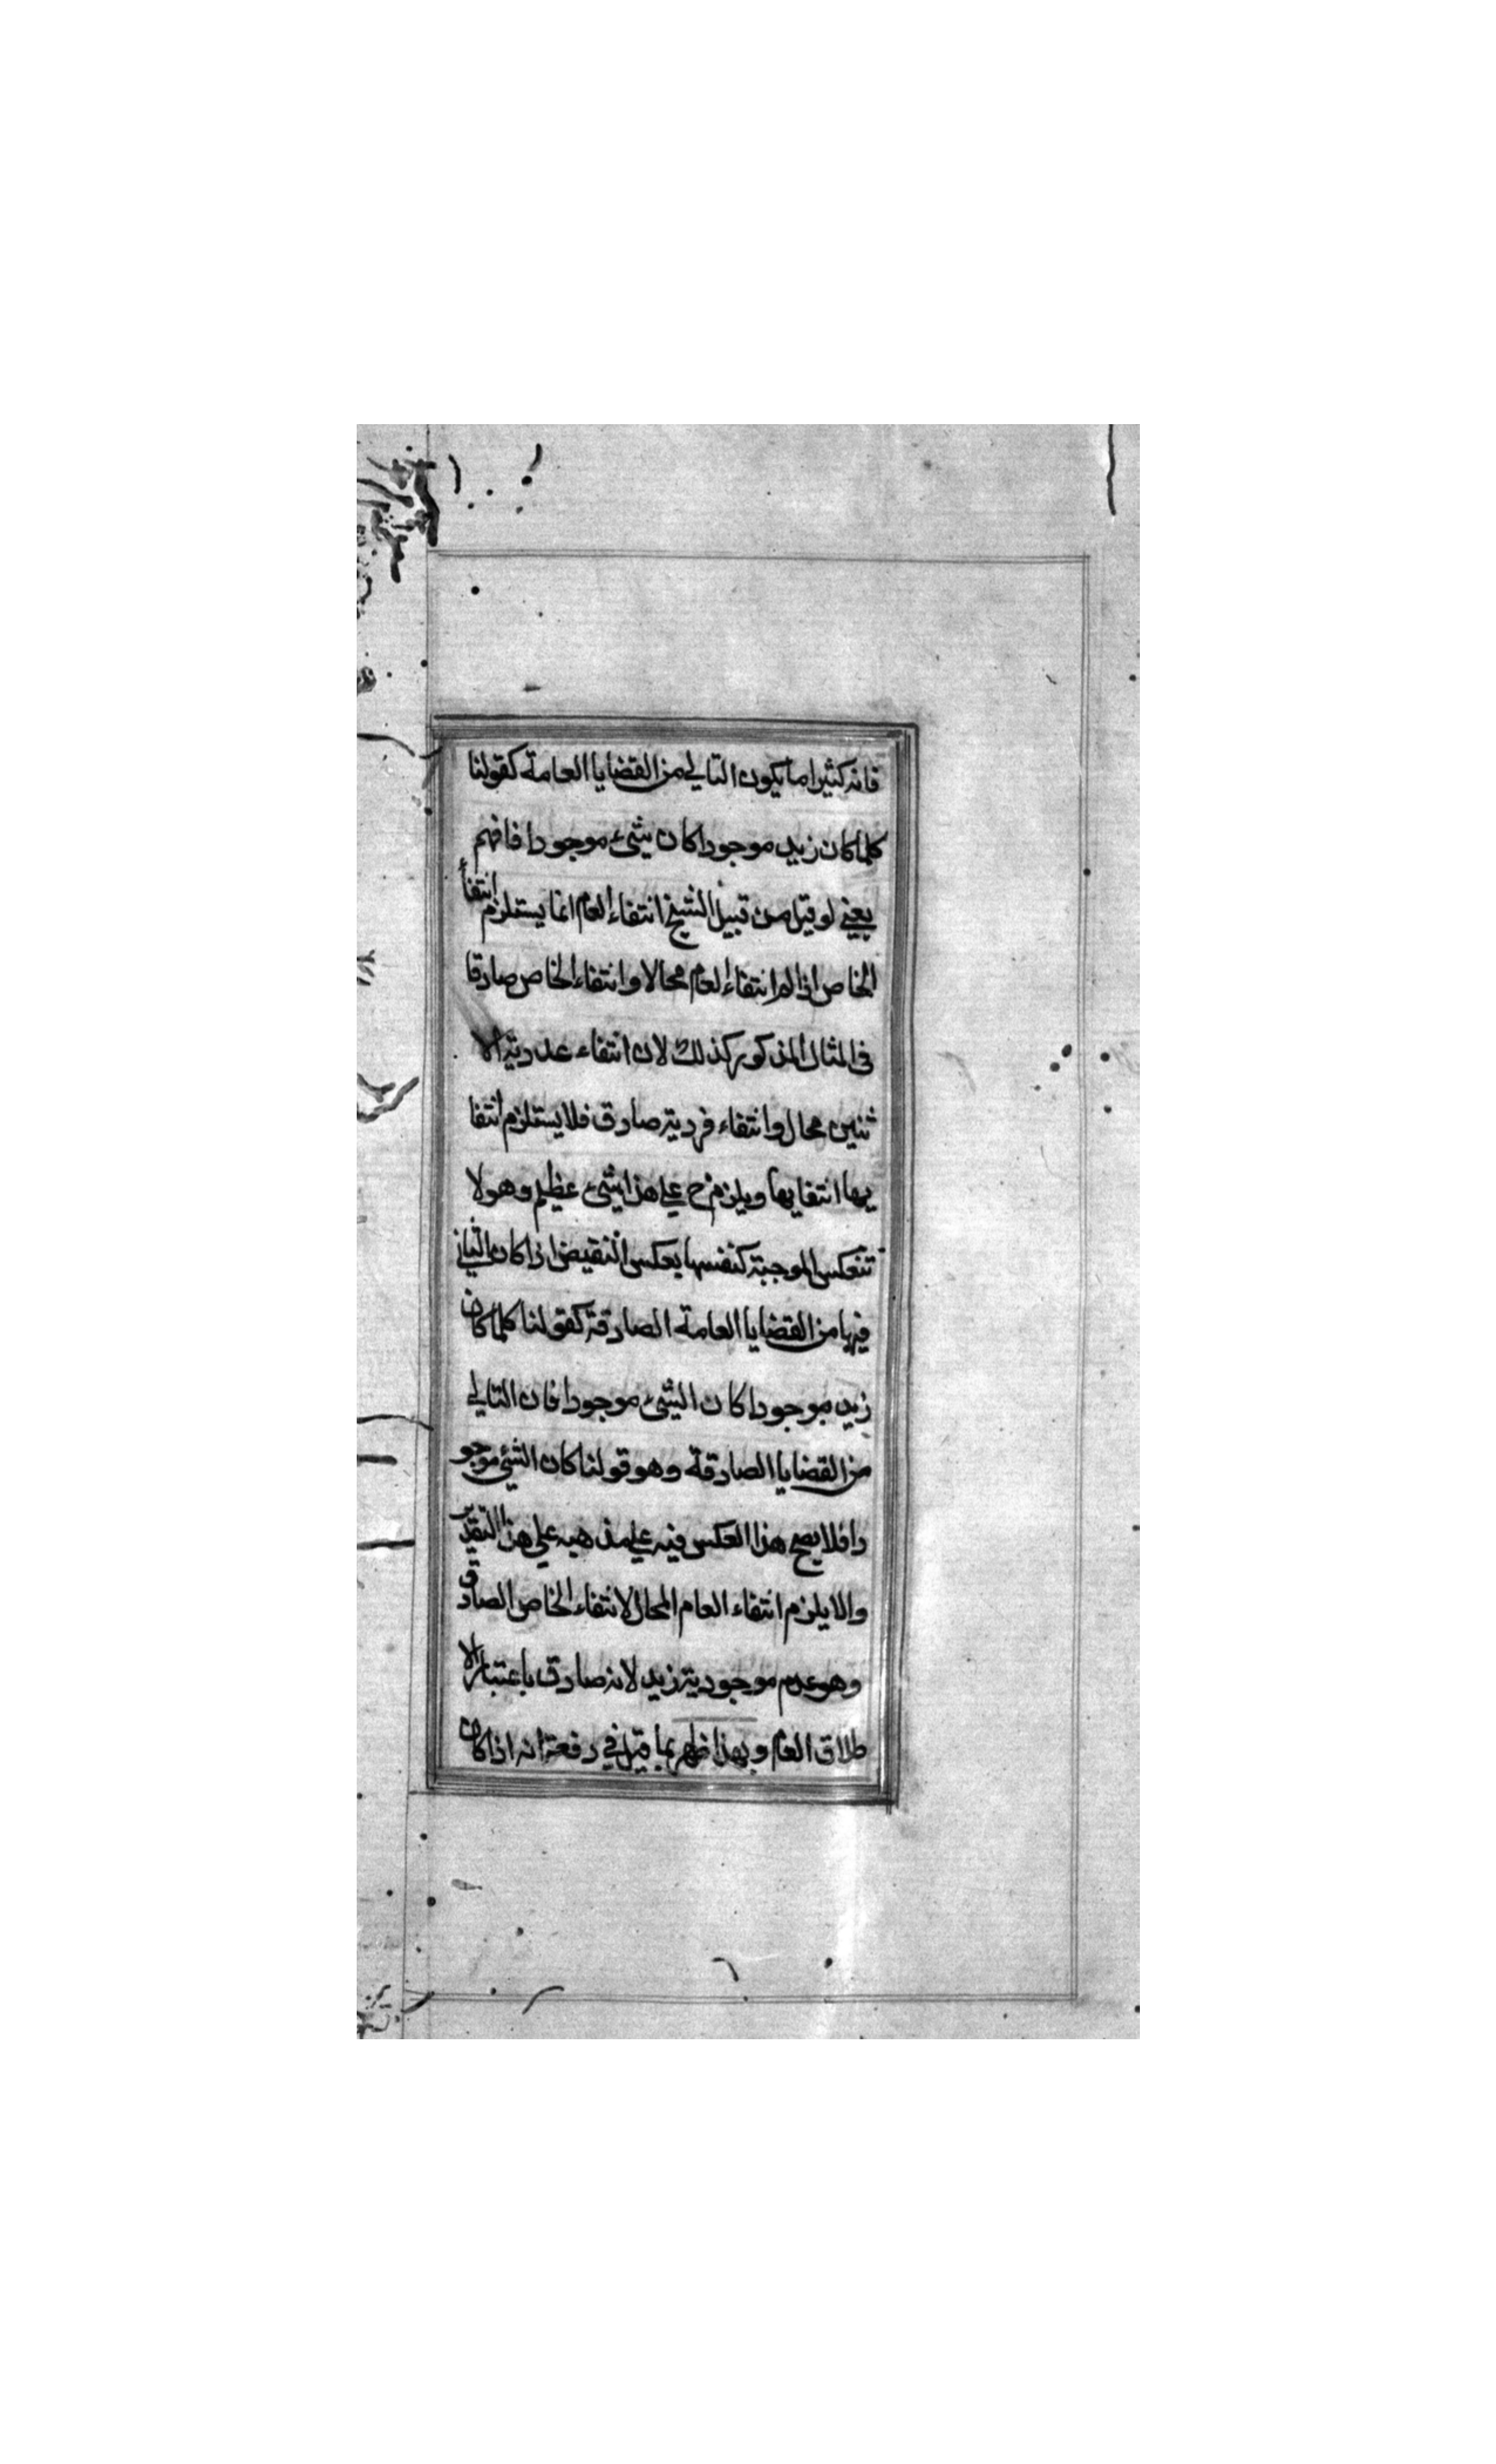 فانه كثيرا ما يكون التالي من القضايا العامة كقولنا
كلما كان زيد موجودا كان شيء موجودا فافهم
يعني لو قيل من قبيل الشيخ انتفاء العام انما يستلزم انتفأ
الخاص اذا لم انتفاء العام محالا وانتفاء الخاص صادقا
في المثال المذكور كذلك لان انتفاء عددية الا
ثنين محال وانتفاء فردية صادق فلا يستلزم انتفا
يها انتفايها ويلزم ح علي هذا شيء عظيم وهو لا
تنعكس الموجبة كنفسها بعكس النقيض اذا كان التالي
فيها من القضايا العامة الصادقة كقولنا كلما كان
زيد موجودا كان الشيء موجودا فان التالي
من القضايا الصادقة وهو قولنا كان الشيء موجو
دا فلا يصح هذا العكس فيه علي مذهبه علي هذا التقدير
والا يلزم انتفاء العام المحال لانتفاء الخاص الصادق
وهو عدم موجودية زيد لانه صادق باعتبار الا
طلاق العام وبهذا ظهر ما قيل في دفعه انه اذا كان